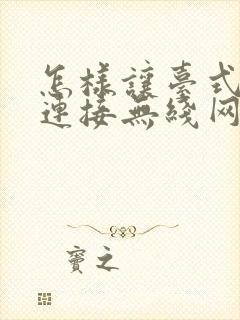 怎樣讓臺式
連接無綫网
竇之